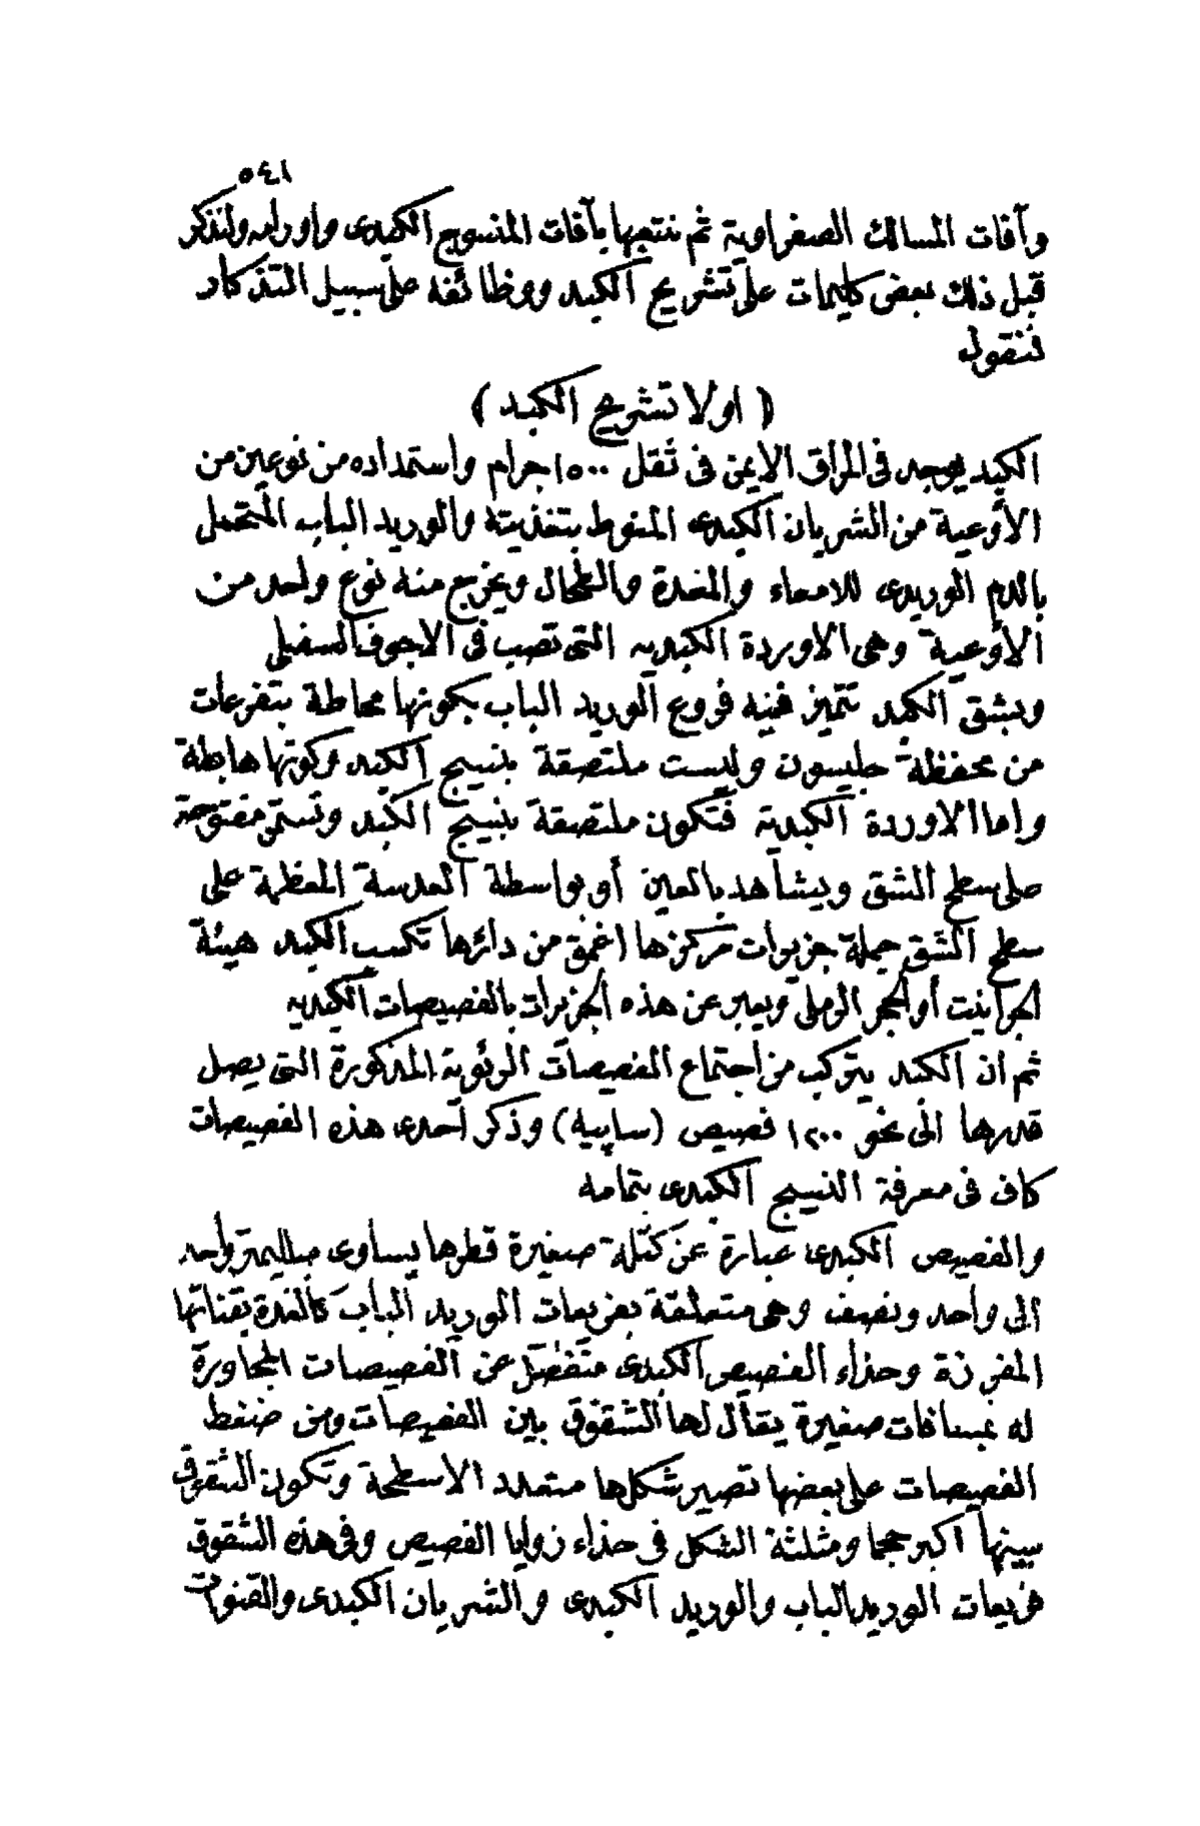 ٥٤١
وآفات المسالك الصفراوية ثم نتبعها بآفات المنسوج الكبدى واورامه ولنذكر
قبل ذلك بعض كليمات على تشريح الكبد ووظائفه على سبيل التذكار
فنقول
( اولا تشريح الكبد )
الكبد يوجد فى المراق الايمن فى ثقل ١٥٠٠ جرام واستمداده من نوعين من
الأوعية من الشريان الكبدى المنوط بتغذيته والوريد الباب المتحمل
بالدم الوريدى للامعاء والمعدة والطحال ويخرج منه نوع واحد من
الاوعية وهى الاوردة الكبديه التى تصب فى الاجوف السفلى
وبشق الكبد تتميز فيه فروع الوريد الباب بكونها محاطة بتفرعات
من محفظة جليسون وليست ملتصقة بنسيج الكبد وكونها هابطة
واما الاوردة الكبدية فتكون ملتصقة بنسيج الكبد وتستمر مفتوحة
على سطح الشق ويشاهد بالعين أو بواسطة العدسة المعظمة على
سطح الشق جملة جزيرات مركزها اغمق من دائرها تكسب الكبد هيئة
الجرانيت أو الحجر الرملى ويعبر عن هذه الجزيرات بالفصيصات الكبديه
ثم ان الكبد يتركب من اجتماع الفصيصات الرئوية المذكورة التى يصل
قدرها الى نحو ١٢٠٠ فصيص (سابيه) وذكر احدى هذه الفصيصات
كاف فى معرفة النسيج الكبدى بتمامه
والفصيص الكبدى عبارة عن كتلة صغيرة قطرها يساوى ميلليمتر واحد
الى واحد ونصف وهى متعلقة بفريعات الوريد الباب كالغدة بقناتها
المفرزة وحذاء الفصيص الكبدى منفصل عن الفصيصات المجاورة
له بمسافات صغيرة يقال لها الشقوق بين الفصيصات ومن ضغط
الفصيصات على بعضها تصير شكلها متعدد الاسطحة وتكون الشقوق
بينها اكبر حجما ومثلثة الشكل فى حذاء زوايا الفصيص وفى هذه الشقوق
فريعات الوريد الباب والوريد الكبدى والشريان الكبدى والقنوات